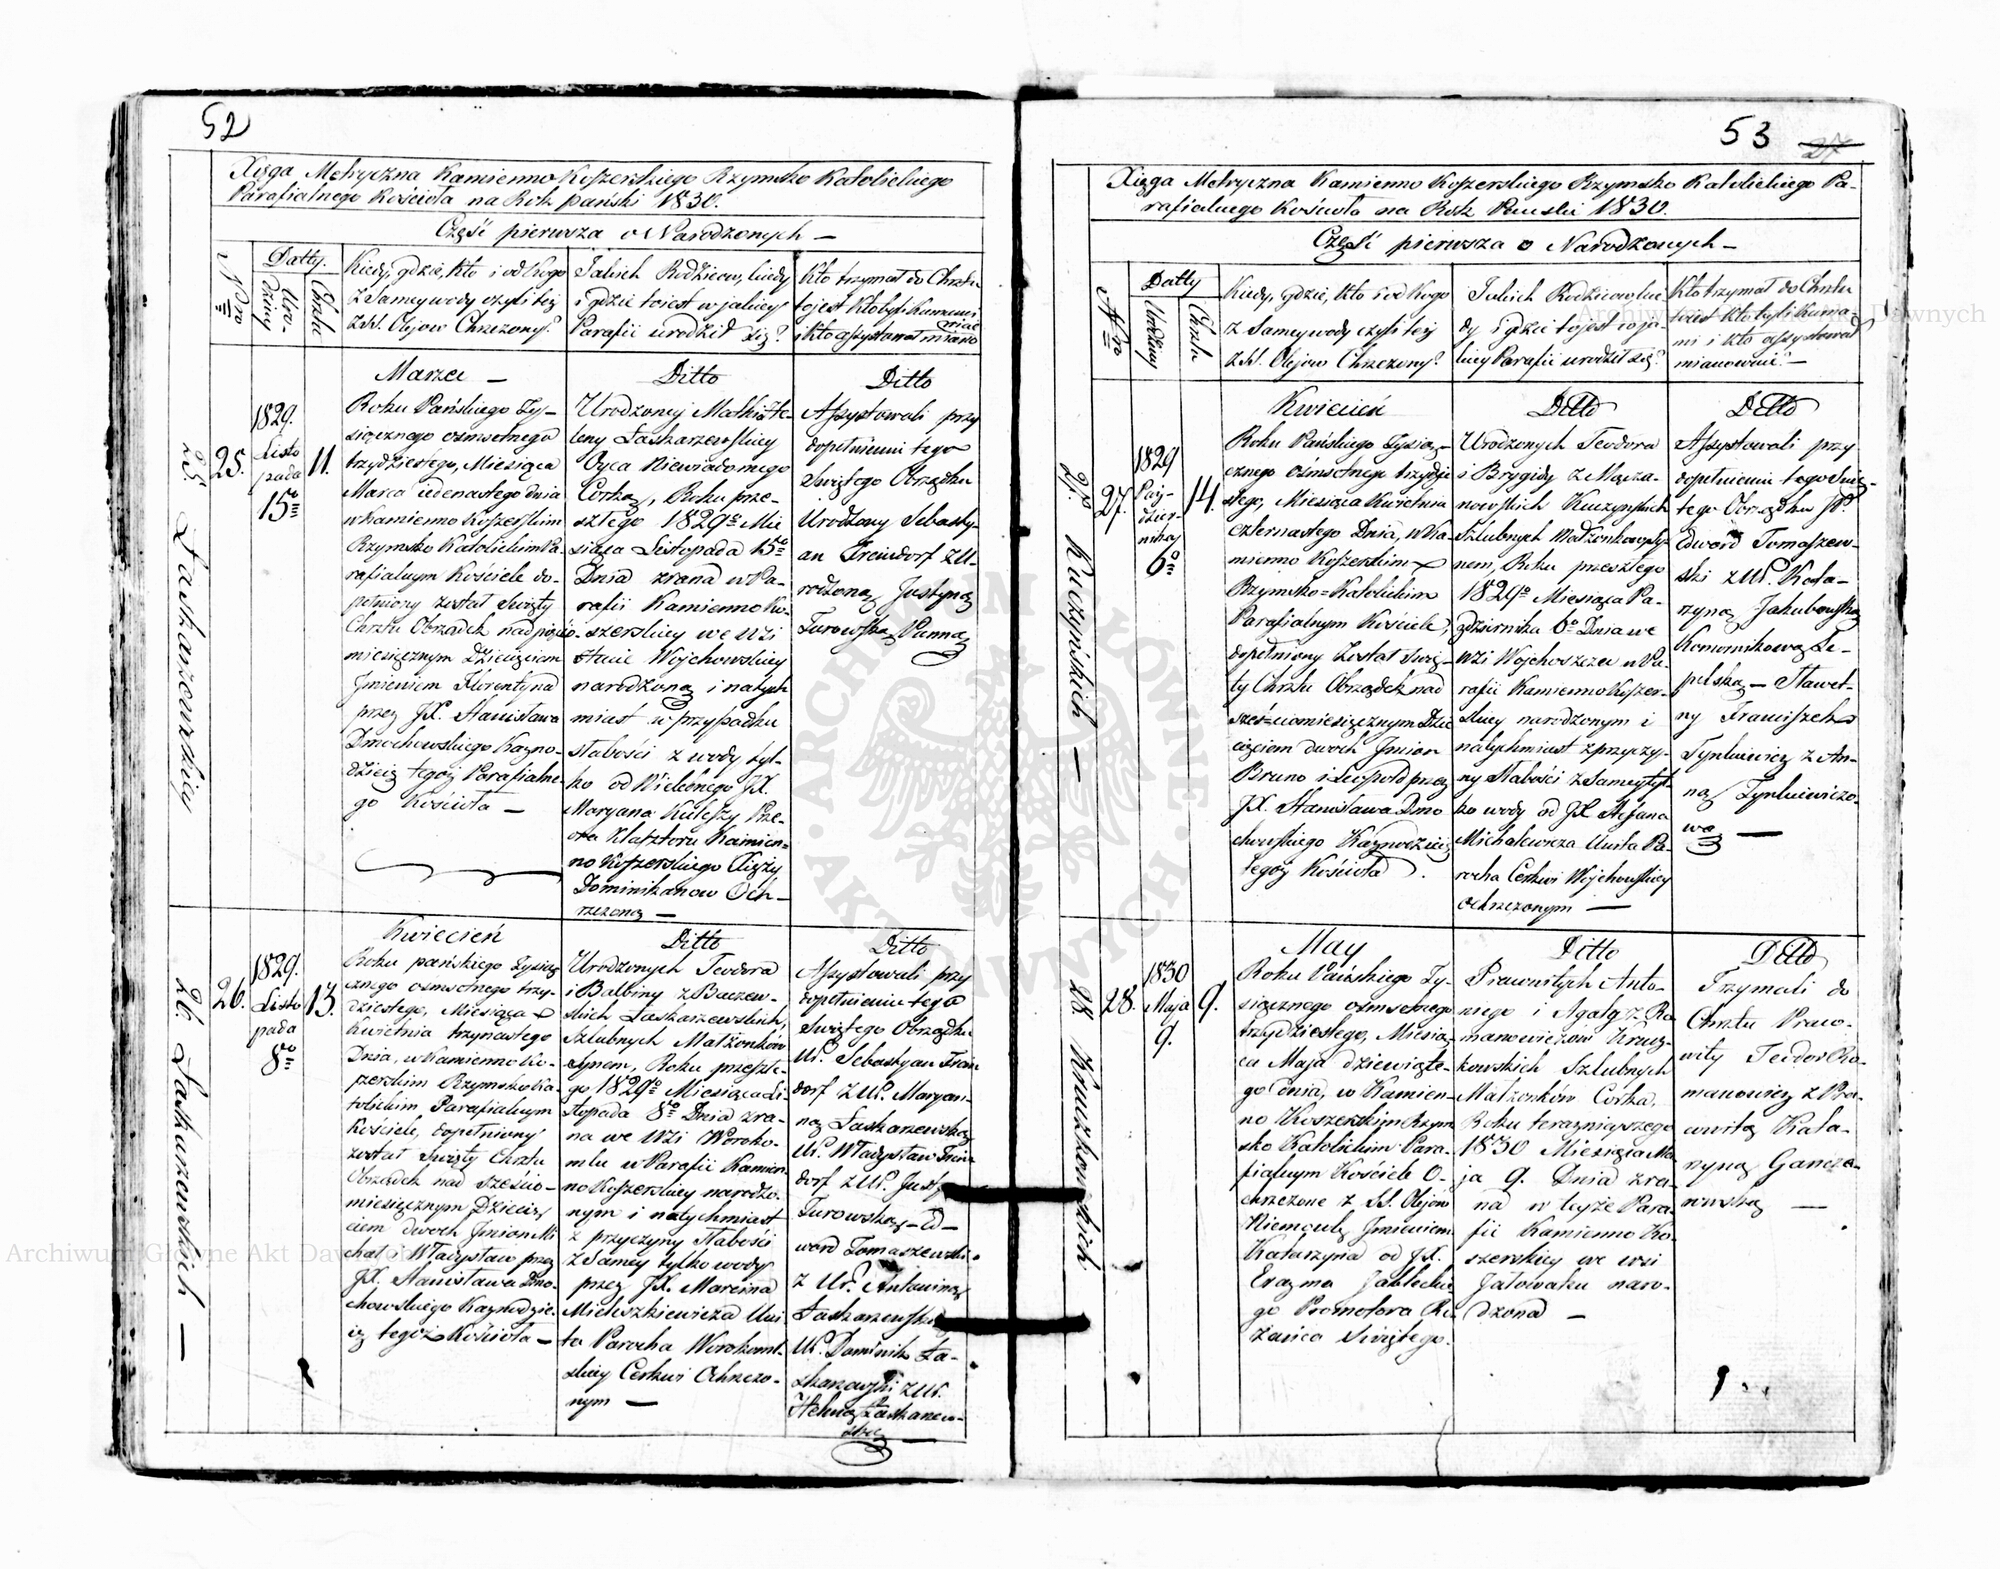 52
Xięga Metryczna Kamienno Koszerskiego Rzymsko Katolickiego
Parafialnego Kościoła na Rok pański 1830.
Część pierwsza o Narodzonych —
Nro
Datty.
Urodziny
Chrztu
Kiedy, gdzie, kto i od kogo
z Samey wody czyli też
z SS. Olejow Chrzczony?
Jakich Rodzicow, kiedy
i gdzie toiest w jakiey
Parafii urodził się?
Kto trzymał do Chrztu
tojest kto byli Kumami
i kto assystował mianowicie
25. Łaskarzewskiey
25.
1829.
Listo
pada
15o
11.
Marzec —
Roku Pańskiego Ty-
siącznego osmsetnego
trzydziestego, Miesiąca
Marca iedenastego dnia
w Kamienno Koszerskim
Rzymsko Katolickim Pa-
rafialnym Kościele do-
pełniony został Święty
Chrztu Obrządek nad pięcio-
miesięcznym Dziecięciem
Jmieniem Florentyna
przez JX. Stanisława
Dmochowskiego Kazno-
dzieię tegoż Parafialne-
go Kościoła —
Ditto
Urodzoney Matki He-
leny Łaskarzewskiey
Oyca Niewiadomego
Corkę, Roku prze-
szłego 1829o Mie
siąca Listopada 15o
Dnia zrana w Pa-
rafii Kamienno Ko-
szerskiey we wsi
Wojchowskiey
narodzoną i natych
miast w przypadku
słabości z wody tyl-
ko od Wielebnego JX.
Maryana Kuleszy Prze-
ora Klasztoru Kamien-
no Koszerskiego Xięży
Dominikanow Och-
rzczoną —
Ditto
Assystowali przy
dopełnieniu tego
Świętego Obrządku
Urodzony Sebasty-
an Trendorf z U-
rodzoną Justyną
Turowską Panną
26. Łaskarzewskich —
26.
1829.
Listo
pada
8o
13.
Kwiecień
Roku pańskiego Tysią
cznego osmsetnego trzy-
dziestego, Miesiąca
Kwietnia trzynastego
Dnia, w Kamienno Ko-
szerskim Rzymsko Ka-
tolickim, Parafialnym
Kościele, dopełniony
został Święty Chrztu
Obrządek nad sześcio-
miesięcznym Dziecię
ciem dwoch Jmion Mi
chał Władysław przez
JX. Stanisława Dmo-
chowskiego Kaznodzie-
ię tegoż Kościoła —
Ditto
Urodzonych Teodora
i Balbiny z Baczew-
skich Łaskarzewskich,
Szlubnych Małżonków
Synem, Roku przeszłe-
go 1829o Miesiąca Li-
stopada 8o Dnia zra-
na we Wsi Worоko-
mlu w Parafii Kamien-
no Koszerskiey narodzo-
nym i natychmiast
z przyczyny słabości
z Samey tylko wody
przez JX. Marcina
Mieleszkiewicza Uni
ta Parocha Worokoml-
skiey Cerkwi Ochrzczo-
nym —
Ditto
Assystowali przy
dopełnieniu tego
Świętego Obrządku
Ur. Sebastyan Tren
dorf z Ur. Maryan-
ną Łaskarzewską
Ur. Władysław Tren
dorf z Ur. Just
Turowską — Ed-
ward Tomaszewski
z Ur. Antoniną
Łaskarzewską
Ur. Dominik Ła-
skarzewski z Ur.
Heleną Łaskarzew-
ską —
53
27
Xięga Metryczna Kamienno Koszerskiego Rzymsko Katolickiego Pa-
rafialnego Kościoła na Rok Pański 1830.
Część pierwsza o Narodzonych —
Nro
Datty
Urodziny
Chrztu
Kiedy, gdzie, kto i od kogo
z Samey wody czyli też
z SS. Olejow Chrzczony?
Jakich Rodzicow kie-
dy i gdzie tojest w ja-
kiey Parafii urodził się?
Kto trzymał do Chrztu
toiest kto byli Kuma-
mi i kto assystował
mianowicie? —
27. Kuczyńskich —
27.
1829
Paź-
dzier-
nika
6o
14.
Kwiecień
Roku Pańskiego Tysią-
cznego Ośmsetnego trzydzie
stego, Miesiąca Kwietnia
czternastego Dnia, w Ka-
mienno Koszerskim
Rzymsko=Katolickim
Parafialnym Kościele,
dopełniony został Świę-
ty Chrztu Obrządek nad
sześciomiesięcznym Dzie
cięciem dwoch Jmion
Bruno i Leopold przez
JX. Stanisława Dmo
chowskiego Kaznodzieię
tegoż Kościoła.
Ditto
Urodzonych Teodora
i Brygidy z Mara-
nowskich Kuczyńskich
Szlubnych Małżonkow Sy-
nem, Roku przeszłego
1829o Miesiąca Pa-
ździernika 6o Dnia we
Wsi Wojchoszcze w Pa-
rafii Kamienno Koszer-
skiey narodzonym i
natychmiast z przyczy-
ny słabości z Samey tyl-
ko wody od JX Stefana
Michalewicza Unita Pa-
rocha Cerkwi Wojchowskiey
Ochrzczonym —
Ditto
Assystowali przy
dopełnieniu tego Świę-
tego Obrządku JP.
Edward Tomaszew-
ski z Ur. Kata-
rzyną Jakubowską
Komornikową Le-
pelską — Sławet-
ny Franciszek
Tynkiewicz z An-
ną Tynkiewiczo-
wą —
28. Kruszkowskich
28.
1830
Maja
9.
9.
May
Roku Pańskiego Ty-
siącznego ośmsetnego
trzydziestego, Miesią-
ca Maja dziewiąte-
go dnia, w Kamien-
no Koszerskim Rzym
sko Katolickim Para-
fialnym Kościele O-
chrzczone z SS. Olejów
Niemowlę Jmieniem
Katarzyna od JX.
Erazma Jabłeckie
go Promotora Ró-
żańca Świętego.
Ditto
Prawnitych Anto-
niego i Agaty z Ro
manowiczów Krusz-
kowskich Szlubnych
Małżonków Córka,
Roku terazniejszego
1830 Miesiąca Ma
ja 9. Dnia zra-
na w teyże Para
fii Kamienno Ko-
szerskiey we wsi
Jatowaku naro-
dzona —
Ditto
Trzymali do
Chrztu Praco-
wity Teodor Ro-
manowicz z Pra-
cowitą Kata-
rzyną Gancza-
rowską —
ARCHIWUM GŁÓWNE AKT DAWNYCH
Archiwum Główne Akt Dawnych
Archiwum Główne Akt Dawnych